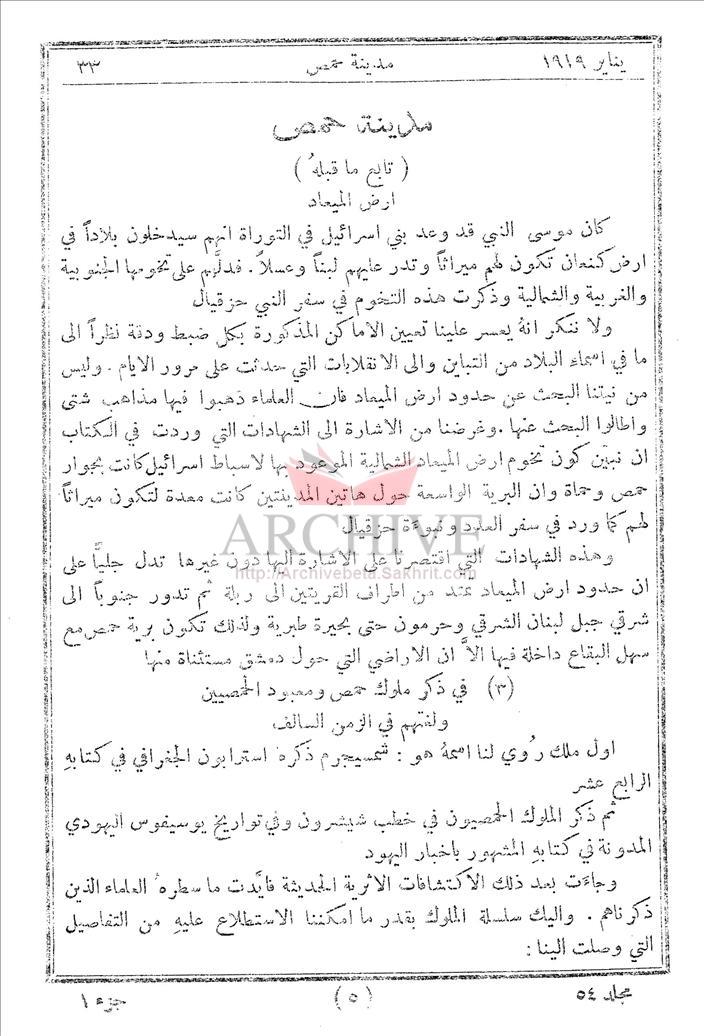 يناير ١٩١٩ مدينة حمص ٣٣
مدينة حمص
( تابع ما قبلهُ )
ارض الميعاد
كان موسى النبي قد وعد بني اسرائيل في التوراة انهم سيدخلون بلاداً في
ارض كنعان تكون لهم ميراثاً وتدر عليهم لبناً وعسلاً . فدلَّهم على تخومها الجنوبية
والغربية والشمالية وذكرت هذه التخوم في سفر النبي حزقيال
ولا ننكر انهُ يعسر علينا تعيين الاماكن المذكورة بكل ضبط ودقة نظراً الى
ما في اسماء البلاد من التباين والى الانقلابات التي حدثت على مرور الايام . وليس
من نيتنا البحث عن حدود ارض الميعاد فان العلماء ذهبوا فيها مذاهب شتى
واطالوا البحث عنها . وغرضنا من الاشارة الى الشهادات التي وردت في الكتاب
ان نبيّن كون تخوم ارض الميعاد الشمالية الموعود بها لاسباط اسرائيل كانت بجوار
حمص وحماة وان البرية الواسعة حول هاتين المدينتين كانت معدة لتكون ميراثاً
لهم كما ورد في سفر العدد ونبوءة حزقيال
ARCHIVE
وهذه الشهادات التي اقتصرنا على الاشارة اليها دون غيرها تدل جليًّا على
http://Archivebeta.Sakhrit.com
ان حدود ارض الميعاد تمتد من اطراف القريتين الى ربلة ثم تدور جنوباً الى
شرقي جبل لبنان الشرقي وحرمون حتى بحيرة طبرية ولذلك تكون برية حمص مع
سهل البقاع داخلة فيها الاَّ ان الاراضي التي حول دمشق مستثناة منها
(٣) في ذكر ملوك حمص ومعبود الحمصيين
ولغتهم في الزمن السالف
اول ملك رُوي لنا اسمهُ هو : شمسيجرم ذكرهُ استرابون الجغرافي في كتابهِ
الرابع عشر
ثم ذكر الملوك الحمصيون في خطب شيشرون وفي تواريخ يوسيفوس اليهودي
المدونة في كتابهِ المشهور باخبار اليهود
وجاءَت بعد ذلك الأكتشافات الاثرية الحديثة فايَّدت ما سطرهُ العلماء الذين
ذكرناهم . واليك سلسلة الملوك بقدر ما امكننا الاستطلاع عليهِ من التفاصيل
التي وصلت الينا :
مجلد ٥٤ (٥) جزء ١